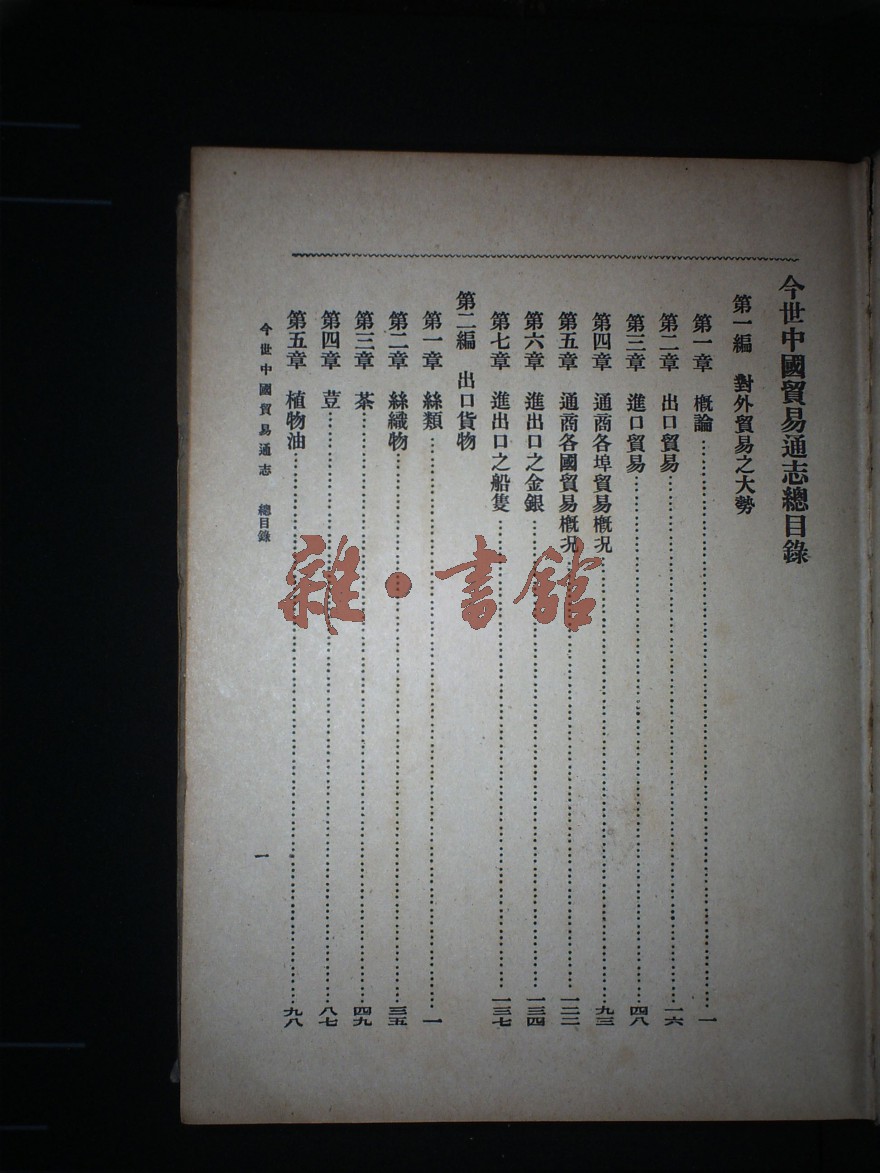 今世中國貿易通志總目錄
第一編 對外貿易之大勢
第一章 概論……一
第二章 出口貿易……一六
第三章 進口貿易……四八
第四章 通商各埠貿易概況……九三
第五章 通商各國貿易概況……一二二
第六章 進出口之金銀……一三四
第七章 進出口之船隻……一三七
第二編 出口貨物
第一章 絲類……一
第二章 絲織物……三五
第三章 茶……四九
第四章 荳……八七
第五章 植物油……九八
今世中國貿易通志 總目錄 一
雜·書館